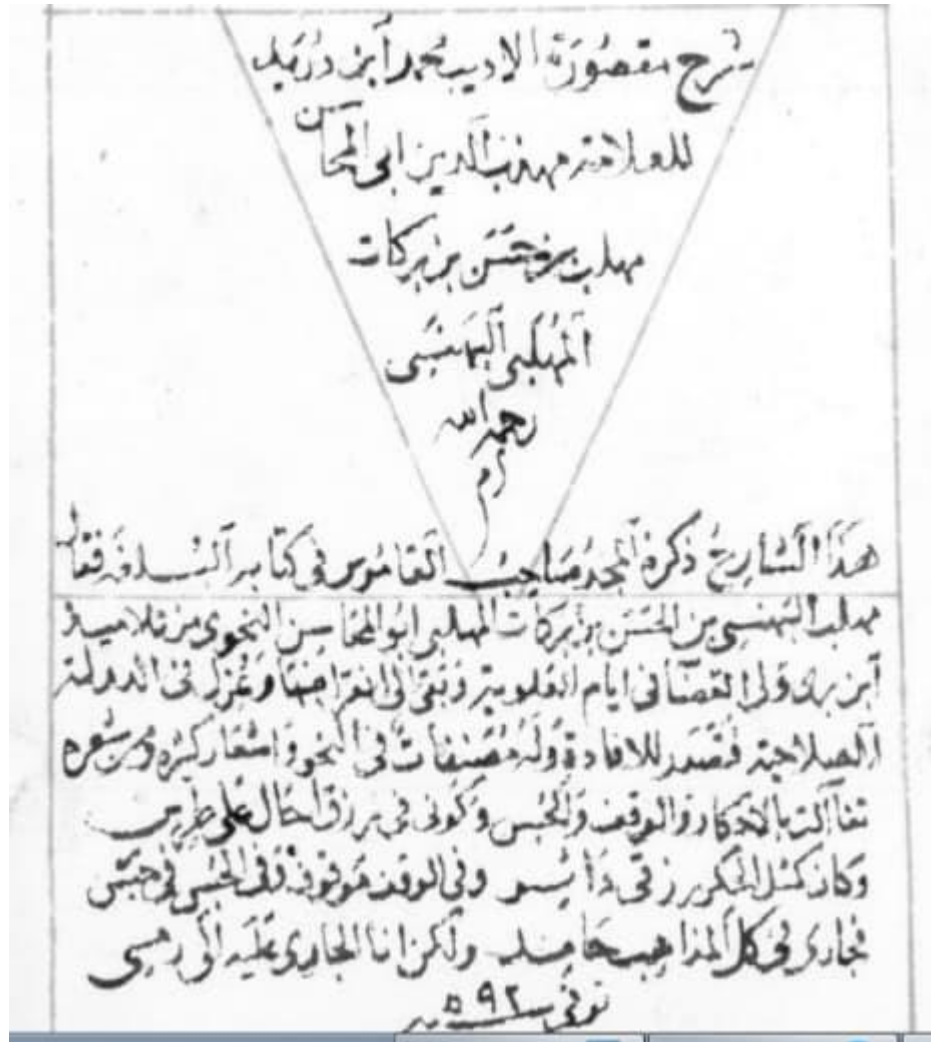 شرح مقصورة الاديب محمد ابن دريد
للعلامة مهذب الدين ابى المحاسن
مهلب بن حسن بن بركات
المهلبى البهنسى
رحمه الله
هذا الشارح ذكره المجد صاحب القاموس فى كتابه البلغة فقال
مهلب البهنسى بن الحسن بن بركات المهلبى ابو المحاسن النحوى من تلاميذ
ابن برى ولى القضا فى ايام العلوية وبقى الى انقراضها وعزل فى الدولة
الصلاحية فتصدر للافادة وله مصنفات فى النحو واشعار كثيرة ومن شعره
بالاحكار والوقف والحبس وكونى فى رزق احال على
وكان كمثل الحكر رزقى وفى الوقف موقوفا وفى الحبس فى حبس
فجارى فى كل المذاهب جامد ولكن انا الجارى عليه الى رمسى
توفى سنة ٥٩٢